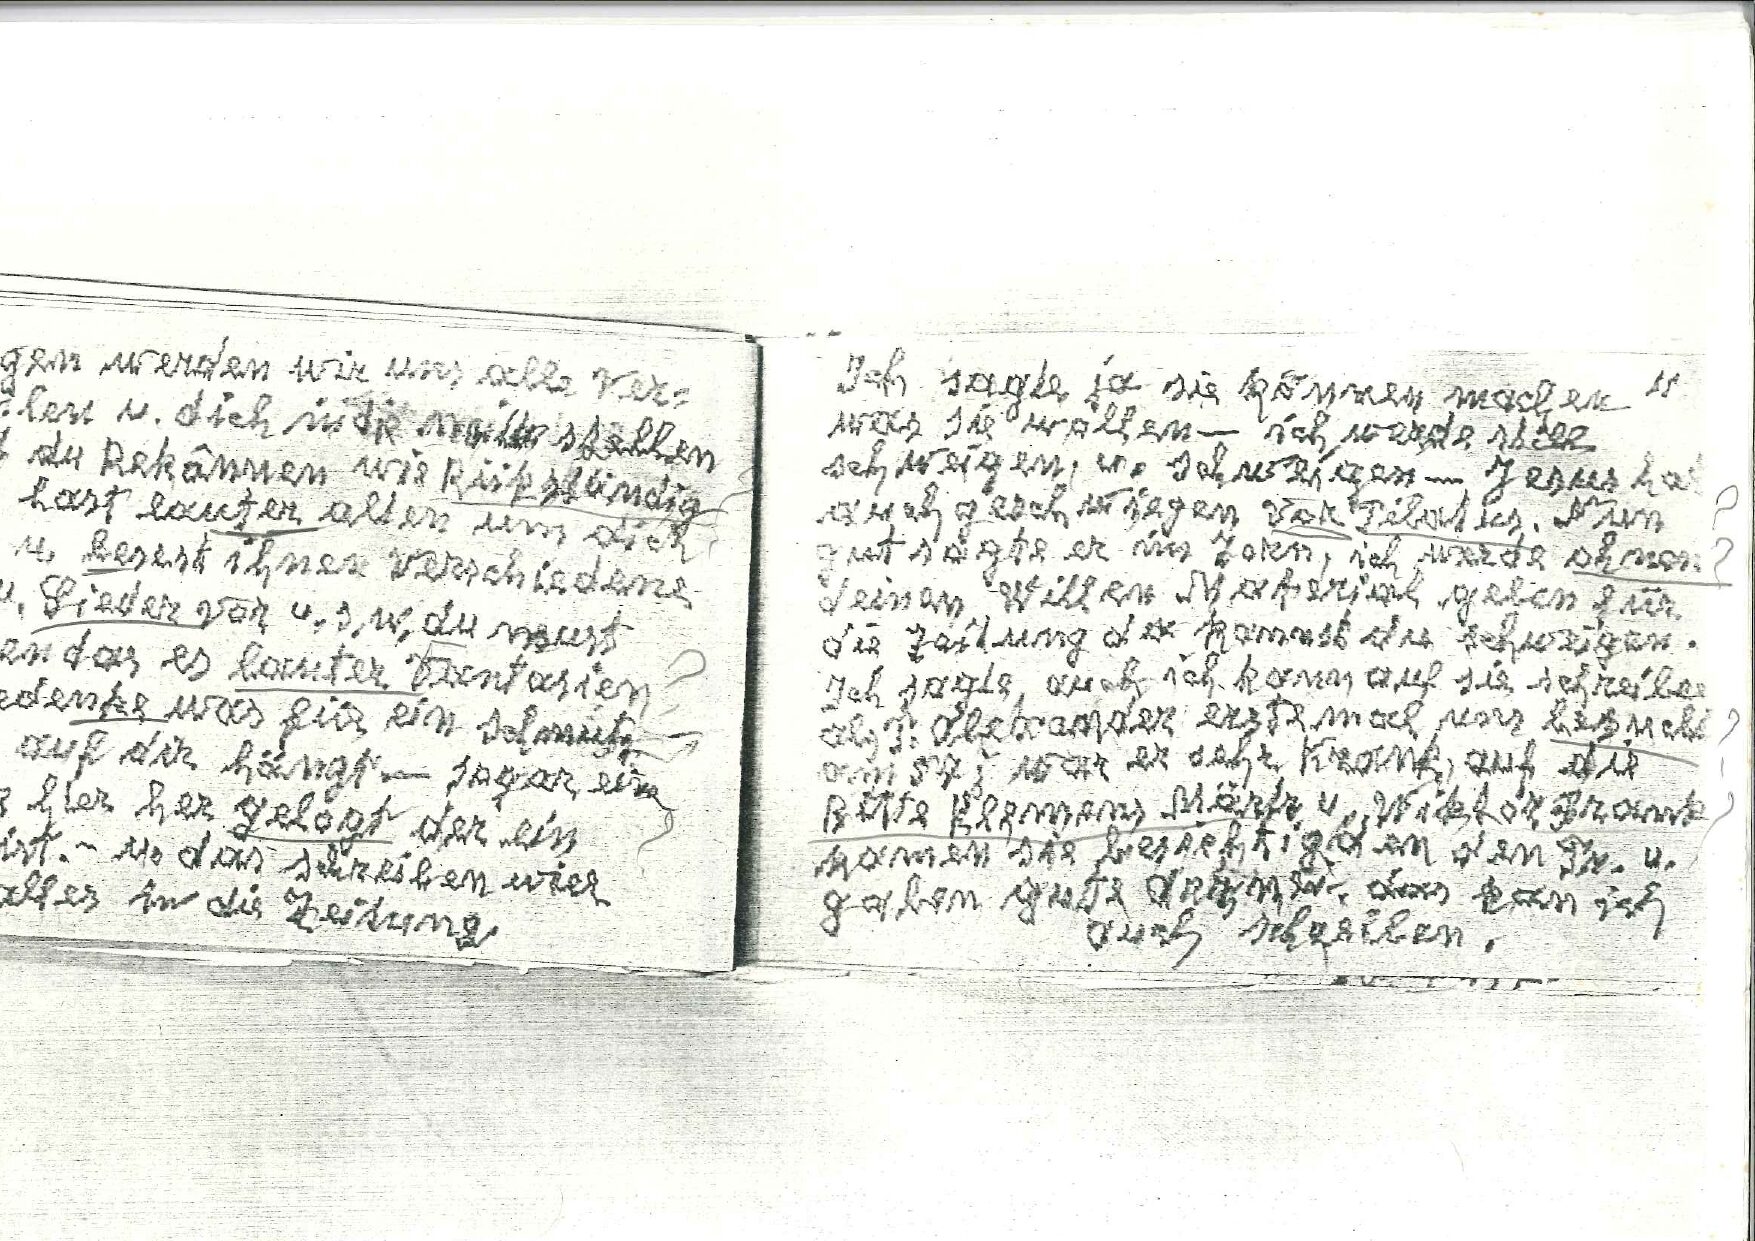 gen werden wir uns alle ver=
len u. dich stellen
du bekännen wie
hast lauter alten um dich
u. lesest ihnen verschiedene
u. Lieder vor u. s. w. du must
das es lauter Fantasien
was für ein schmutz
auf dir hängt — sogar ein
hier her gelogt der ein
ist. — u. das schreiben wier
alles in die Zeitung.
Ich sagte ja sie kännen machen
was sie wöllen — ich werde stiel
schweigen, u. schweigen — Jesus hat
auch geschwiegen vor Pilatus. Nun
gut sagte er im Zorn, ich werde ohnen
deinen Willen Material geben für
die Zaitung da kannst du schweigen.
Ich sagte, auch ich kann auf sie schreiben
als P. Alexander erste mal uns besucht
am 57 J war er sehr krank, auf die
Bitte Klemens Märtz u. Wiktor Frank
kamen sie besichtigden den Kr. u.
gaben gute das kan ich
auch schreiben.